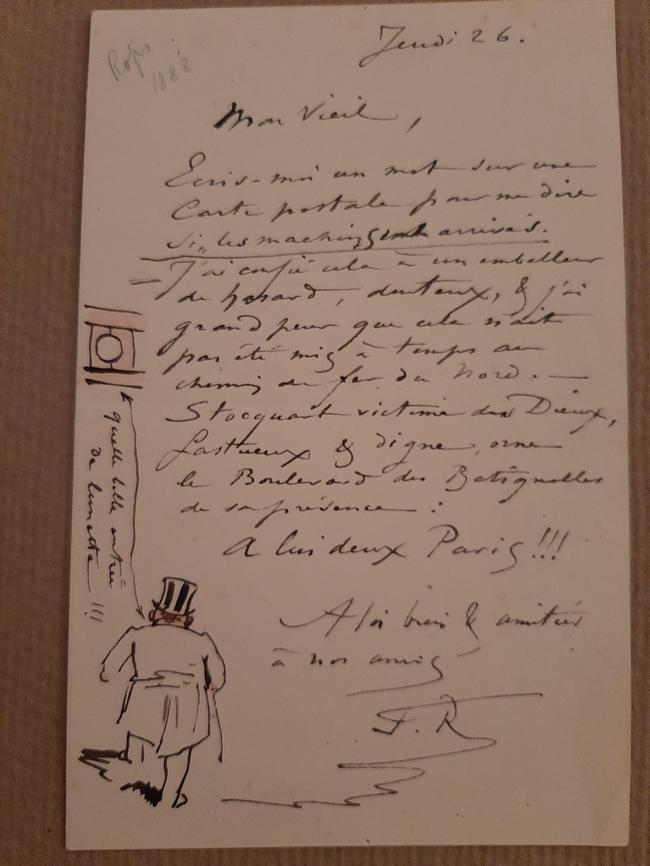 Rops
1888
Jeudi 26.
Mon Vieil,
Ecris-moi un mot sur une
Carte postale pour me dire
si les machins sont arrivés.
J'ai confié cela à un emballeur
de hasard, douteux, & j'ai
grand peur que cela n'ait
pas été mis à temps au
chemin de fer du Nord. —
Stocquart victime des Dieux,
fastueux & digne, orne
le Boulevard des Batignolles
de sa présence :
A lui deux Paris !!!
A toi bien & amitiés
à nos amis
F. R
quelle belle entrée
de lunette !!!